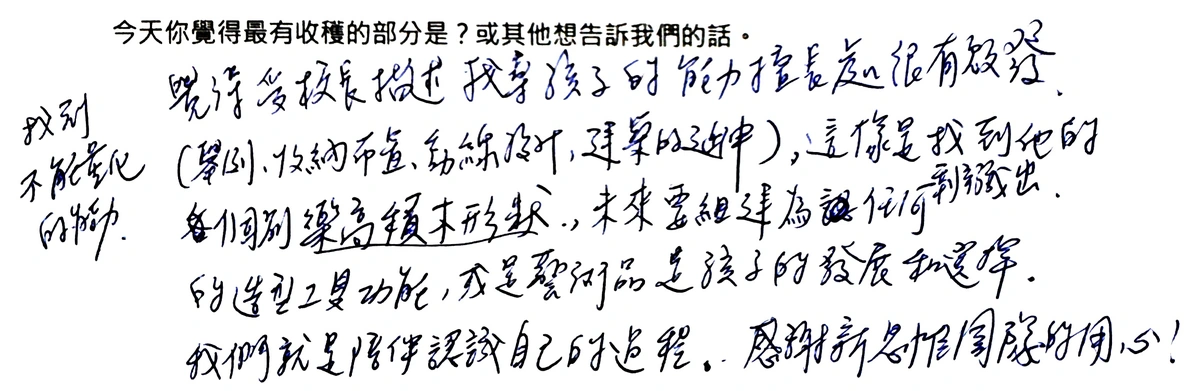 今天你覺得最有收穫的部分是？或其他想告訴我們的話。
覺得受校長描述找尋孩子的能力擅長處很有啟發.
(舉例、收納布置、動線設計,建築的延伸),這像是找到他的
各個別樂高積木形狀.,未來要組建為任何
的造型工具功能,或是藝術品是孩子的發展和選擇.
我們就是陪伴認識自己的過程.. 感謝新思惟團隊的用心!
找到
不能量化
的能力.